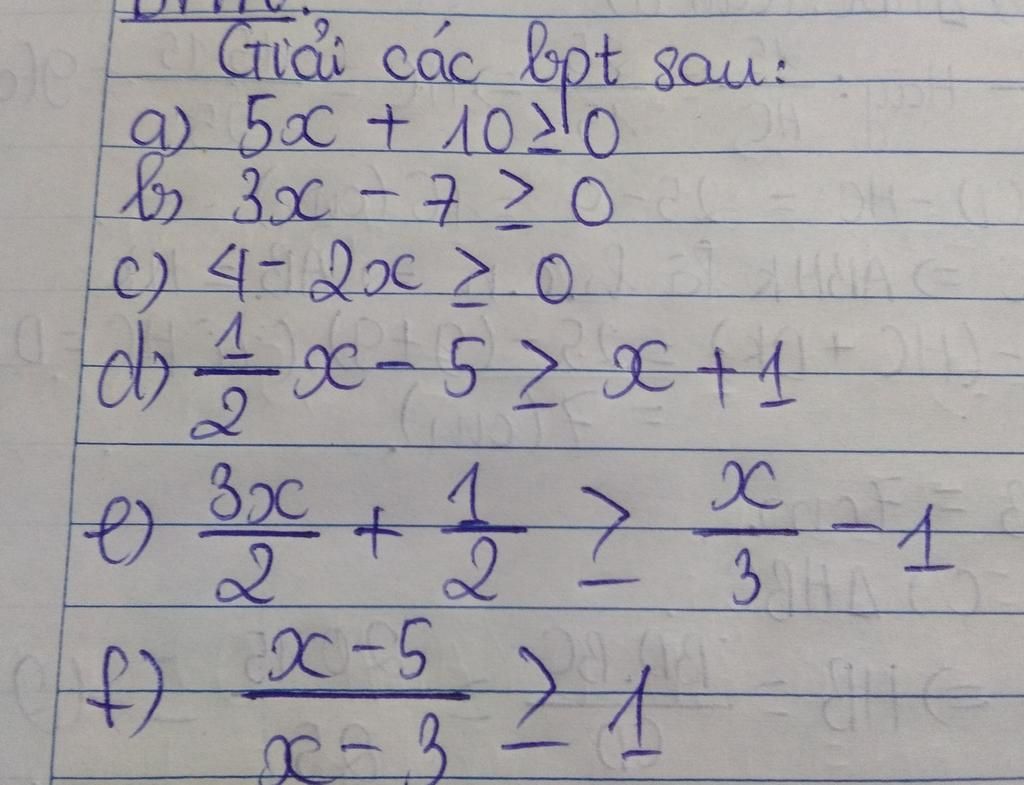 Giải các bpt sau:
a) 5x + 10 ≥ 0
b) 3x - 7 ≥ 0
c) 4 - 2x ≥ 0
d) 1/2 x - 5 ≥ x + 1
e) 3x/2 + 1/2 ≥ x/3 - 1
f) (x-5)/(x-3) ≥ 1